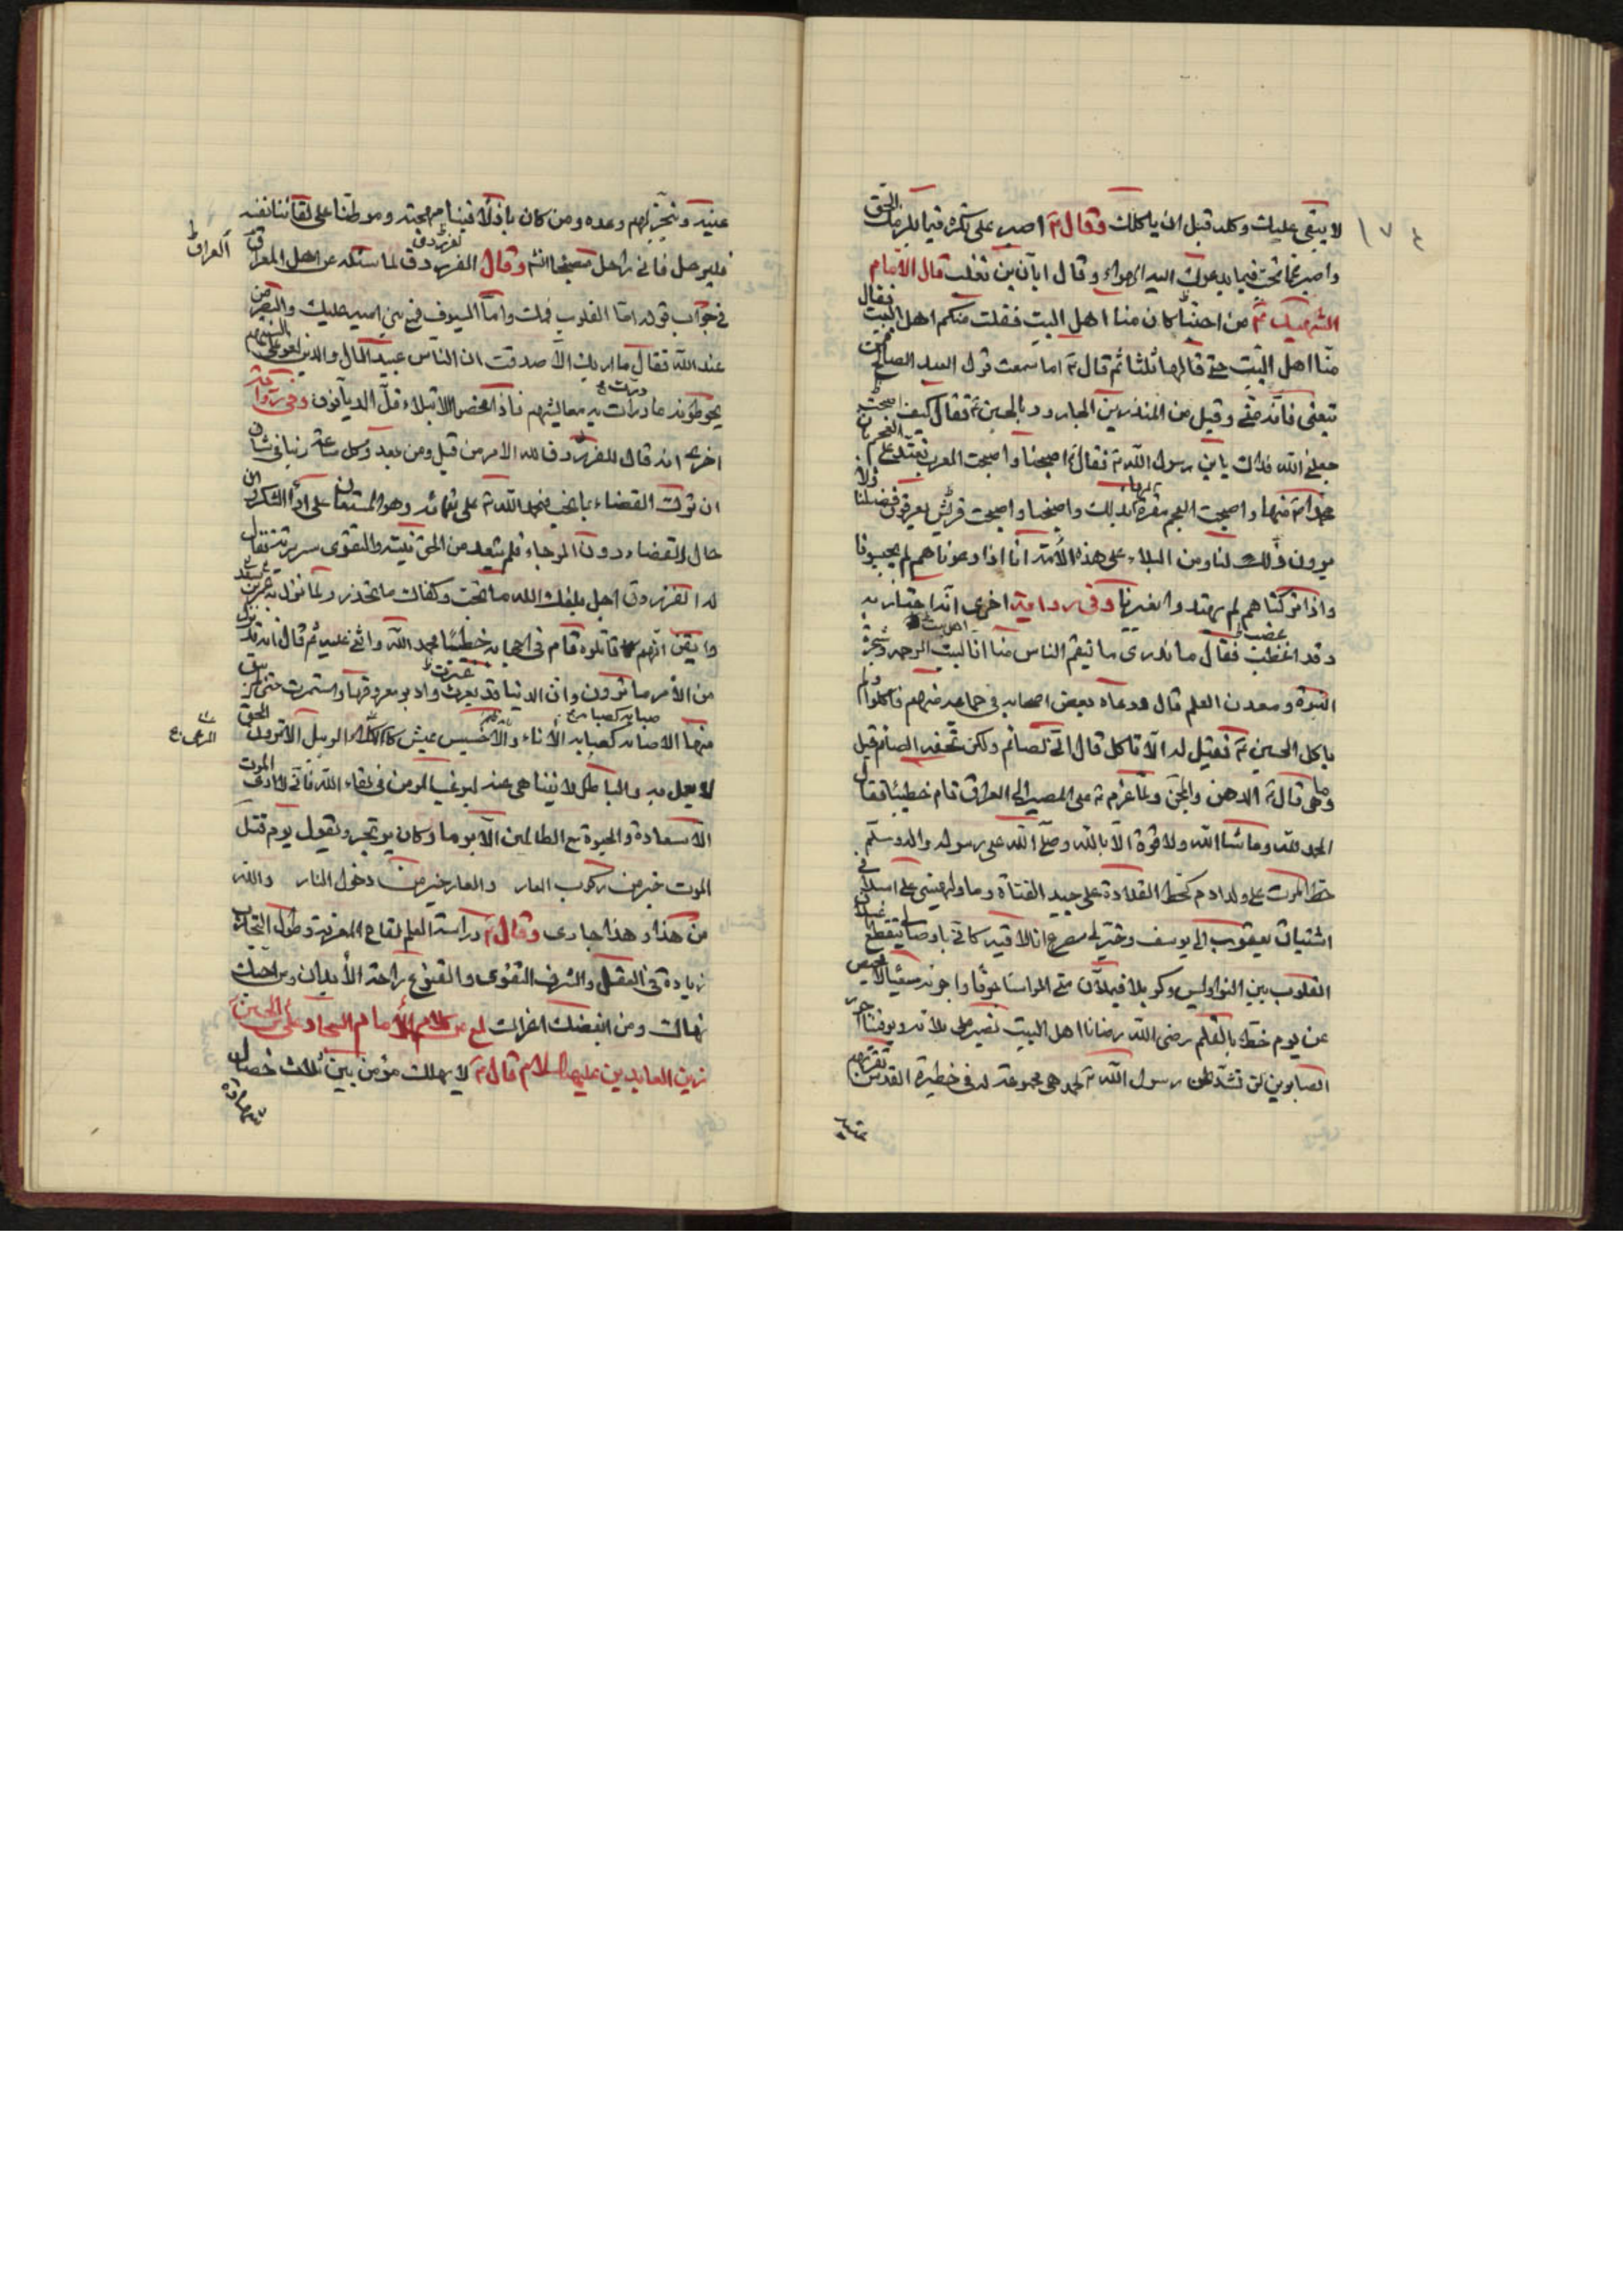 ١٧٤
لا يبقى عليك وكله قبل ان ياكلك وقال ع اصبر على ما تكره فيما يلزمك الحق
واصبر عما تحب فيما يدعوك اليه الهواء وقال ابان بن تغلب قال الامام
الشهيد ع من احبنا كان منا اهل البيت فقلت منكم اهل البيت فقال
منا اهل البيت حتى قالها ثلثا ثم قال ع اما سمعت قول العبد الصالح فمن
تبعني فانه مني وقيل مر المنذر بن الجارود بالحسين ع فقال كيف اصبحت
جعلني الله فداك يابن رسول الله ص فقال ع اصبحنا واصبحت العرب تعتد على العجم بان
محمدا ص منها واصبحت العجم مقرة لها بذلك واصبحنا واصبحت قريش يعرفون فضلنا ولا
يرون ذلك لنا ومن البلاء على هذه الأمة انا اذا دعوناهم لم يجيبونا
واذا تركناهم لم يهتدوا بغيرنا وفي رواية اخرى انه اجتاز به
وقد اغضب فقال ما ندري ما تنقم الناس منا انا لبيت الرحمة وشجرة
النبوة ومعدن العلم قال ودعاه بعض اصحابه في جماعة منهم فاكلوا ولم
ياكل الحسين ع فقيل له الا تاكل قال اني لصائم ولكن تحفة الصائم قيل
وما هي قال ع الدهن والمجمر ولما عزم ع على المصير الى العراق قام خطيبا فقال
الحمد لله وما شاء الله ولا قوة الا بالله وصلى الله على رسوله واله وسلم
خط الموت على ولد ادم مخط القلادة على جيد الفتاة وما اولهني الى اسلافي
اشتياق يعقوب الى يوسف وخير لي مصرع انا لاقيه كاني باوصالي يتقطعها
الفلوات بين النواويس وكربلا فيملأن مني اكراشا جوفا واجربة سغبا لا محيص
عن يوم خط بالقلم رضى الله رضانا اهل البيت نصبر على بلائه ويوفينا اجر
الصابرين لن تشذ عن رسول الله ص لحمته هي مجموعة له في حظيرة القدس تقر بهم
عينه
عينه وينجز بهم وعده ومن كان باذلا فينا مهجته وموطنا على لقائنا نفسه
فليرحل فاني راحل مصبحا انشاء وقال الفرزدق لما سئله عن اهل العراق
العراق
في جواب قوله اما القلوب فمعك واما السيوف فمع بني امية عليك والنصر من
عند الله فقال ما اريك الا صدقت ان الناس عبيد المال والدين لغو على السنتهم
يحوطونه ما درت به معايشهم فاذا محصوا بالابتلاء قل الديانون وفي رواية
اخرى انه قال للفرزدق لله الامر من قبل ومن بعد وكل ساعة ربنا في شان
ان نزل القضاء بما نحب فنحمد الله على نعمائه وهو المستعان على اداء الشكر وان
حال القضاء دون الرجاء فلم يبعد من الحق نيته والتقوى سريرته فقال
له الفرزدق اجل بلغك الله ما تحب وكفاك ما تحذر ولما نزل به عمر بن سعد
وايقن انهم قاتلوه قام في اصحابه خطيبا فحمد الله واثنى عليه ثم قال انه قد نزل
من الأمر ما ترون وان الدنيا قد تغيرت وادبر معروفها واستمرت حتى لم يبق
منها الا صبابة كصبابة الأناء والا خسيس عيش كالكلاء الوبيل الا ترون الحق
المرعى ع
لا يعمل به والباطل لا يتناهى عنه ليرغب المومن في لقاء الله فاني لا ارى الموت
الا سعادة والحيوة مع الظالمين الا برما وكان يرتجز ويقول يوم قتل
الموت خير من ركوب العار والعار خير من دخول النار والله
من هذا وهذا جارى وقال ع دراسة العلم لقاح المعرفة وطول التجارب
زيادة في العقل والشرف التقوى والقنوع راحة الأبدان ومن احبك
نهاك ومن ابغضك اغراك لمع من كلام الأمام السجاد علي بن الحسين
زين العابدين عليهما السلام قال ع لا يهلك مؤمن بين ثلاث خصال
شهادة